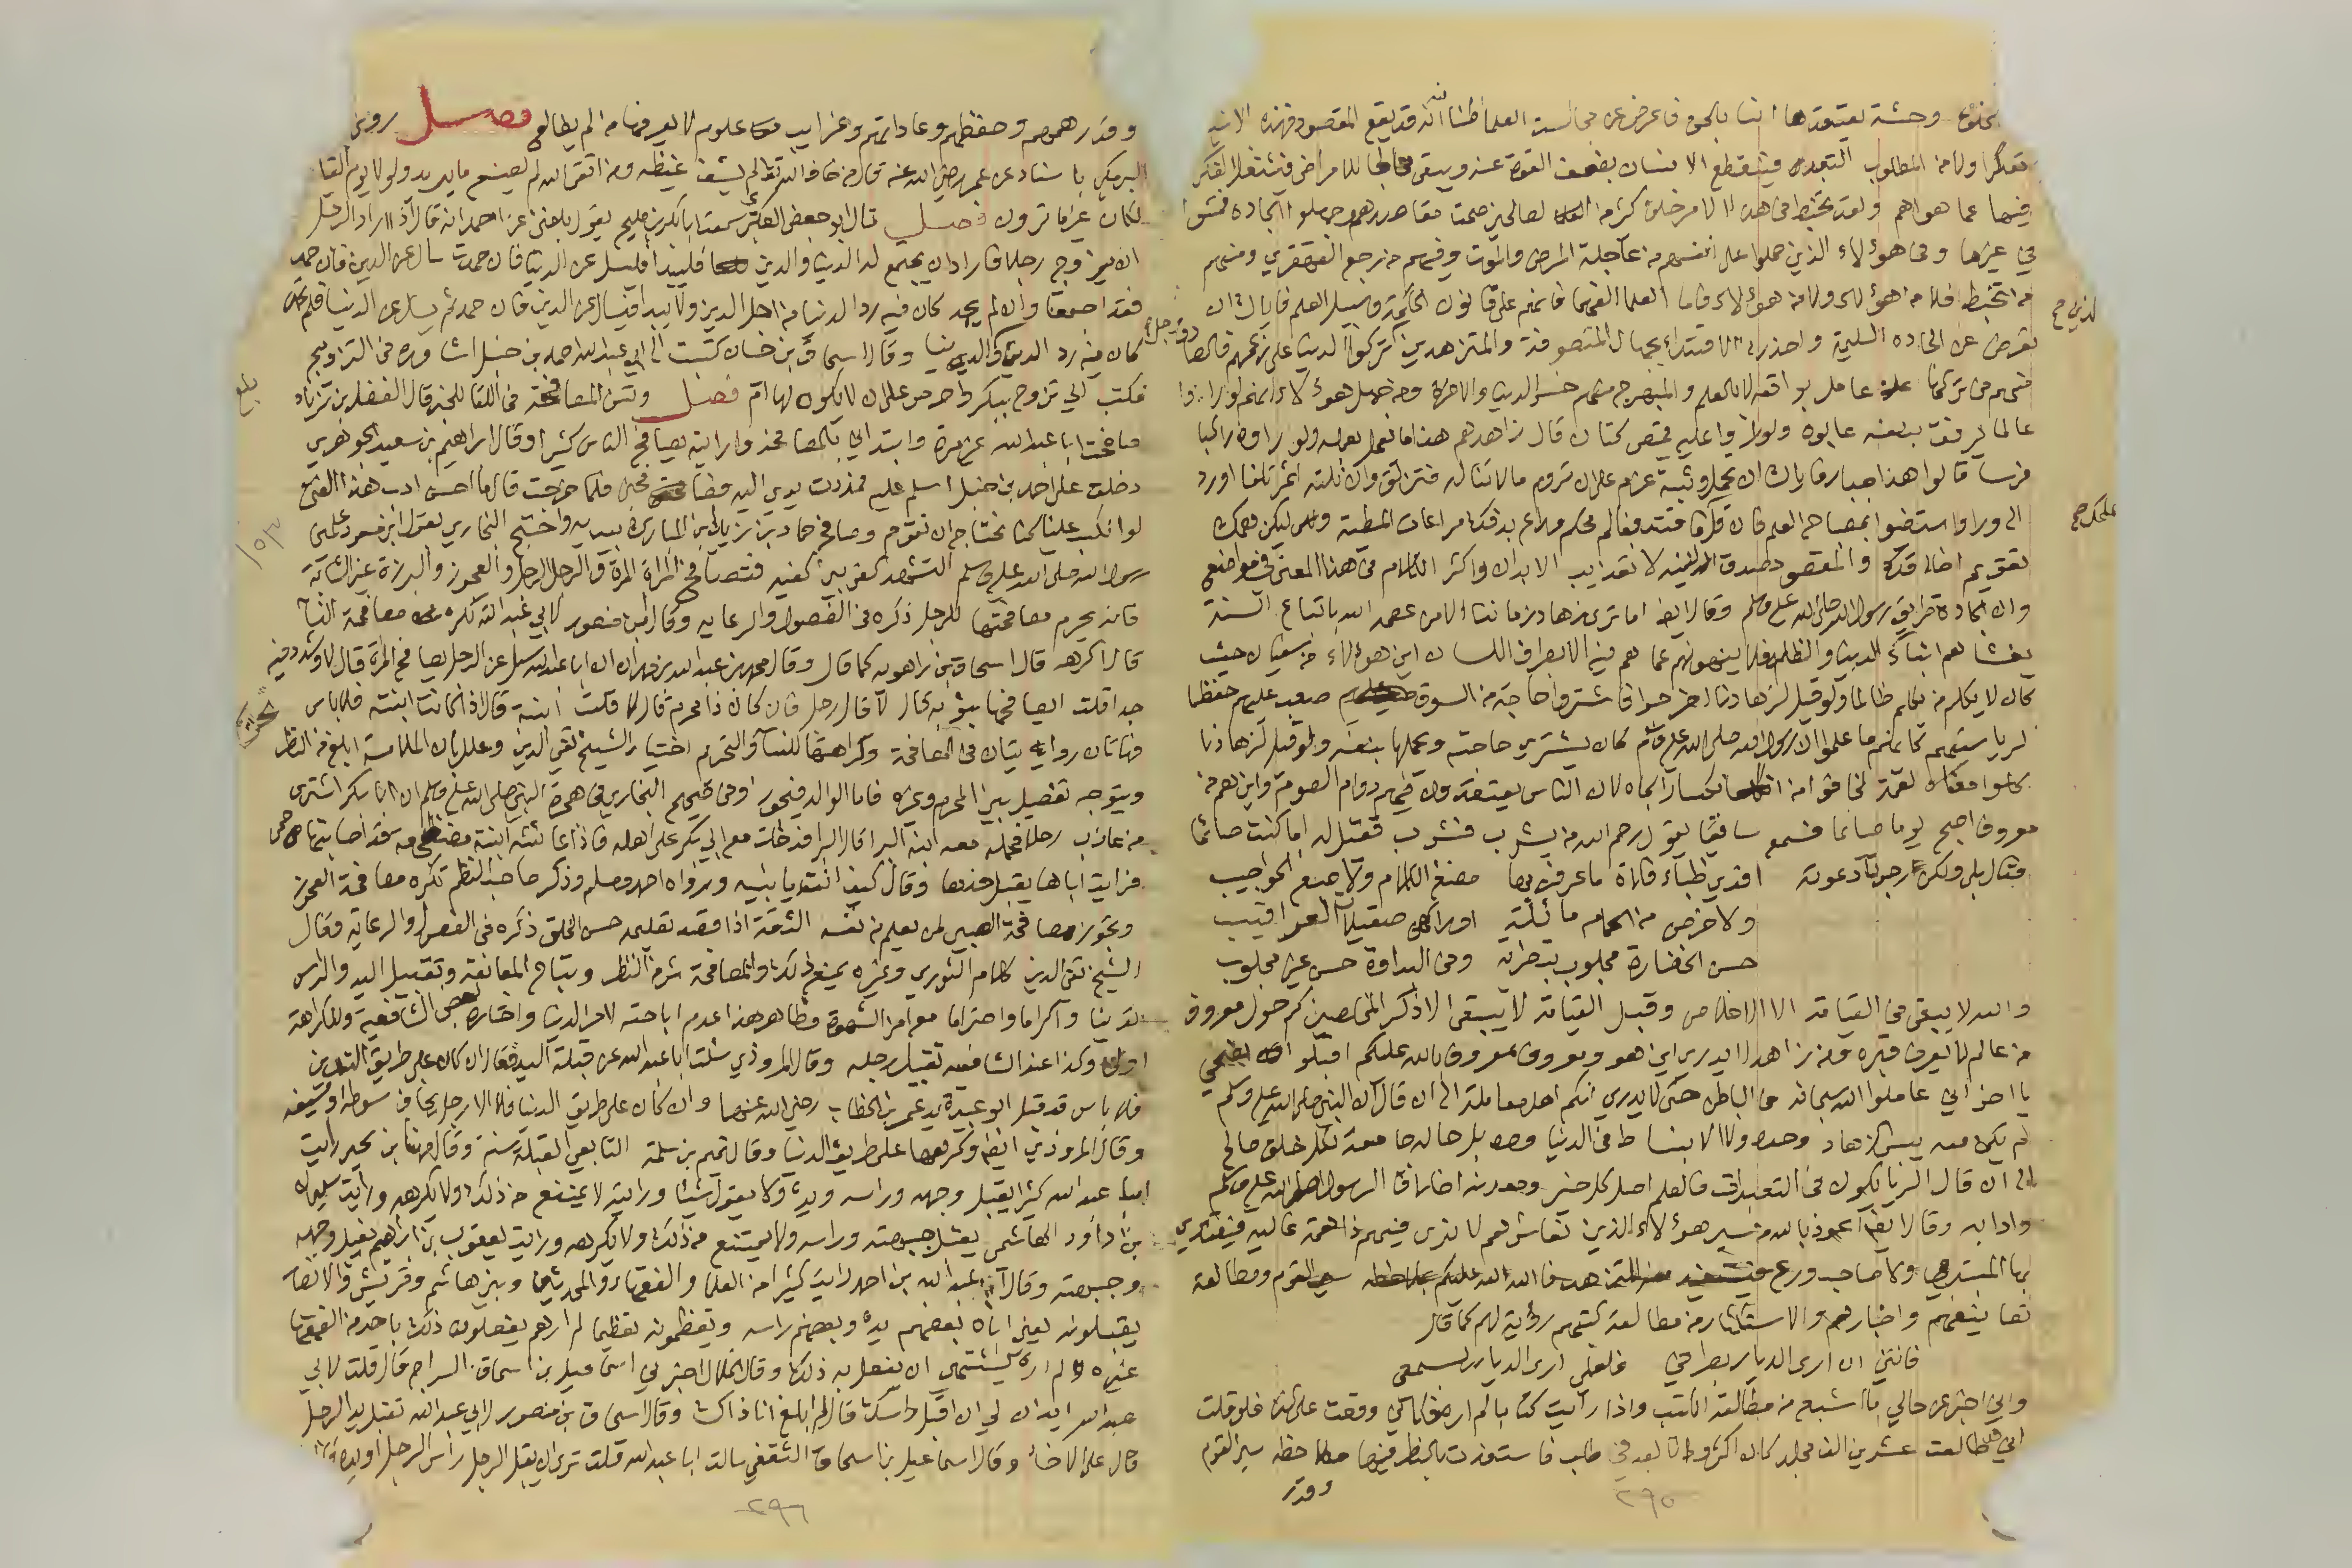 وحشة يعتقدها انسا بالحق فاعرض عن مجالسة العلما ظنا انه قد يقع المقصود فهذه
تفكرا ولا من المطلوب التعبد فينقطع الانسان بضعف القوة عنه ويبقى للامراض فيشتغل الفكر
فيها عما هو اهم ولقد تخبط في هذا الامر خلق كثير من صحت مقاصدهم وجهلوا الجادة فمشوا
في غيرها وفي هؤلاء الذين حملوا على انفسهم من عاجله المرض والموت وفيهم من رجع القهقرى ومنهم
من تخبط فلا من هؤلاء ولا من هؤلاء فاما العلما الفهما فانهم على قانون الحكمة وسبيل العلم فاياك ان
تعرض عن الجادة السليمة واحذر الاقتداء بجهال المتصوفة والمتزهدين تركوا الدنيا على زعمهم فالصا
عامل بواقعه بالعلم والمبهرج منهم خسر الدنيا والاخرة ومن جهل هؤلاء انهم لو راوا
عالما يرفق بنفسه عابوه ولو راوا عليه قميص كتان قال زاهدهم هذا ما يعمل بعلمه ولو راوه راكبا
فرسا قالوا هذا جبار فاياك ان تحملك وثبة عزم على ان تروم ما لا تناله فتزلق وان نلته اثمر تلفا اورد
الى ورا واستضئوا بمصباح العلم فان قل
تقويم اخلاقك والمقصود صدق النية لا تعذيب الابدان واكثر الكلام في هذا المعنى في مواضع
وان الجادة طريق رسول الله صلى الله عليه وسلم وقال ايضا اما ترى زهاد زماننا الا من عصمه الله باتباع السنة
يغشاهم ابناء الدنيا والظلمة فلا ينهونهم عما هم فيه الا بطرف اللسان اين هؤلاء من سفيان حيث
كان لا يكلم من يكلم ظالما ولو قيل لزهادنا اخرجوا فاشتروا حاجة من السوق صعب عليهم حفظا
لرياستهم كانهم ما علموا ان رسول الله صلى الله عليه وسلم كان يشتري حاجته ويحملها بنفسه ولو قيل لزهادنا
كلوا معنا لقمة لخافوا من انكسار الجاه لان الناس يعتقدون فيهم دوام الصوم واين هم من
معروف اصبح يوما صائما فسمع ساقيا يقول رحم الله من يشرب فشرب فقيل له اما كنت صائما
فقال بلى ولكن رجوت دعوته افدي ظباء فلاة ما عرفن بها مضغ الكلام ولا صبغ الحواجيب
ولا خرجن من الحمام مائلة اوراكهن صقيلات العراقيب
حسن الحضارة مجلوب بتطرية وفي البداوة حسن غير مجلوب
والله لا يبقى في القيامة الا الاخلاص وقبل القيامة لا يبقى الا ذكر المخلصين كم حول معروف
من عالم لا يعرف قبره ومن زاهد لا يدرى اين هو ومعروف معروف بالله عليكم اقبلوا نصحي
يا اخواني عاملوا الله سبحانه في الباطن حتى لا يدرى انكم اهل معاملة الى ان قال ان النبي صلى الله عليه وسلم
لم يكن معه يبس الزهاد وحده ولا الانبساط في الدنيا وحده بل حاله جامعة لكل خلق صالح
الى ان قال الرياء يكون في التعبدات فالعلم اصل كل خير ومعدنه اخلاق الرسول صلى الله عليه وسلم
وادابه وقال ايضا اعوذ بالله من سير هؤلاء الذين نعاشرهم لا نرى فيهم ذا همة عالية فيقتدي
بها المبتدي ولا صاحب ورع فيستفيد منه المتزهد فالله الله عليكم بملاحظة سير القوم ومطالعة
تصانيفهم واخبارهم والاستكثار من مطالعة كتبهم رؤية لهم كما قال
فاتني ان ارى الديار بطرفي فلعلي ارى الديار بسمعي
واني اخبر عن حالي ما اشبع من مطالعة الكتب واذا رايت كتابا لم اره فكاني وقعت على كنز فلو قلت
اني قد طالعت عشرين الف مجلد كان اكثر وانا بعد في طلب فاستفدت بالنظر فيها ملاحظة سير القوم
وقدر
٢٩٥
لذي صح
علمك صح
وقدر هممهم وحفظهم وعاداتهم وغرايب علوم لا يعرفها من لم يطالع فصل روى
البرمكي باسناد عن عمر رضي الله عنه قال من خاف الله تعالى لم يشف غيظه ومن اتقى الله لم يصنع ما يريد ولولا يوم القيا
لكان غير ما ترون فصل قال ابو حفص العكبري سمعت ابا بكر بن مليح يقول بلغني عن احمد انه قال اذا اراد الرجل
ان يزوج رجلا فاراد ان يجتمع له الدنيا والدين فليبدا فليسل عن الدنيا فان حمدت سال عن الدين فان حمد
فقد اجتمعا وان لم يحمد كان فيه رد الدنيا من اجل الدين ولا يبدا فيسال عن الدين فان حمد ثم يسل عن الدنيا فلم تحمد
كان فيه رد الدين للدنيا وقال اسحاق بن حسان كتبت الى ابي عبد الله احمد بن حنبل اشاوره في التزويج
فكتب الي تزوج ببكر واحرص على ان لا يكون لها ام فصل وتسن المصافحة في اللقا للخبر قال الفضل بن زياد
صافحت ابا عبد الله غير مرة وابتداني بالمصافحة ورايته يصافح الناس كثيرا وقال ابراهيم بن سعيد الجوهري
دخلت على احمد بن حنبل اسلم عليه فمددت يدي اليه فصافحني فلما خرجت قال ما احسن ادب هذا الفتى
لو انكب علينا كنا نحتاج ان نقوم وصافح حماد بن زيد ابن المبارك بيديه واحتج البخاري بقول ابن مسعود علمني
رسول الله صلى الله عليه وسلم التشهد كفي بين كفيه فتصافح المراة المراة والرجل الرجل والعجوز والبرزة غير الشابة
فانه يحرم مصافحتها للرجل ذكره في الفصول والرعاية وقال ابن منصور لابي عبد الله تكره مصافحة النسا
قال اكرهه قال اسحاق بن راهويه كما قال وقال محمد بن عبد الله بن مهران ان ابا عبد الله سئل عن الرجل يصافح المراة قال لا وشدد فيه
جدا قلت ايصافحها بثوبه قال لا قال رجل فان كان ذا محرم قال لا قلت ابنته قال اذا كانت ابنته فلا باس
فهاتان روايتان في المصافحة وكراهتها للنساء والتحريم اختيار الشيخ تقي الدين وعلل بان الملامسة ابلغ من النظر
ويتوجه تفصيل بين المحرم وغيره فاما الوالد فيجوز وفي صحيح البخاري في هجرة النبي صلى الله عليه وسلم ان ابا بكر اشترى
من عازب رحلا فحمله معه ابنه البرا قال البرا فدخلت مع ابي بكر على اهله فاذا عائشة ابنته مضطجعة قد اصابتها حمى
فرايت اباها يقبل خدها وقال كيف انت يا بنية ورواه احمد ومسلم وذكر صاحب النظم تكره مصافحة العجوز
وتجوز مصافحة الصبي لمن يعلم من نفسه الثقة اذا قصد تعليمه حسن الخلق ذكره في الفصول والرعاية وقال
الشيخ تقي الدين كلام الثوري وغيره يمنع ذلك والمصافحة شر من النظر وتباح المعانقة وتقبيل اليد والراس
تدينا واكراما واحتراما مع امن الشهوة وظاهر هذا عدم اباحته لامر الدنيا واختاره بعض الشافعية والكراهة
اولى وكذا عند الشافعية تقبيل رجله وقال المروذي سئلت ابا عبد الله عن قبلة اليد فقال ان كان على طريق التدين
فلا باس قد قبل ابو عبيدة يد عمر بن الخطاب رضي الله عنهما وان كان على طريق الدنيا فلا الا رجل يخاف سوطه او سيفه
وقال المروذي ايضا وكرهها على طريق الدنيا وقال تميم بن سلمة التابعي القبلة سنة وقال مهنا بن يحيى رايت
ابا عبد الله كثيرا يقبل وجهه وراسه ويده ولا يقول شيئا ورايته لا يمتنع من ذلك ولا يكرهه ورايت سليمان
بن داود الهاشمي يقبل جبهته وراسه ولا يمتنع من ذلك ولا يكرهه ورايت يعقوب بن ابراهيم يقبل وجهه
وجبهته وقال عبد الله بن احمد رايت كثيرا من العلما والفقهاء والمحدثين وبني هاشم وقريش والانصار
يقبلونه يعني اباه بعضهم يده وبعضهم راسه ويعظمونه تعظيما لم ارهم يفعلون ذلك باحد من الفقها
غيره ولم اره يشتهي ان يفعل به ذلك وقال الخلال اخبرني اسماعيل بن اسحاق السراج قال قلت لابي
عبد الله ايدن لي ان اقبل راسك قال لم ابلغ انا ذاك وقال اسحاق بن منصور لابي عبد الله تقبل يد الرجل
قال على الاخاء وقال اسماعيل بن اسحاق الثقفي سالت ابا عبد الله قلت ترى ان يقبل الرجل راس الرجل او يده قال
بلغ
١٥٣
٢٩٦